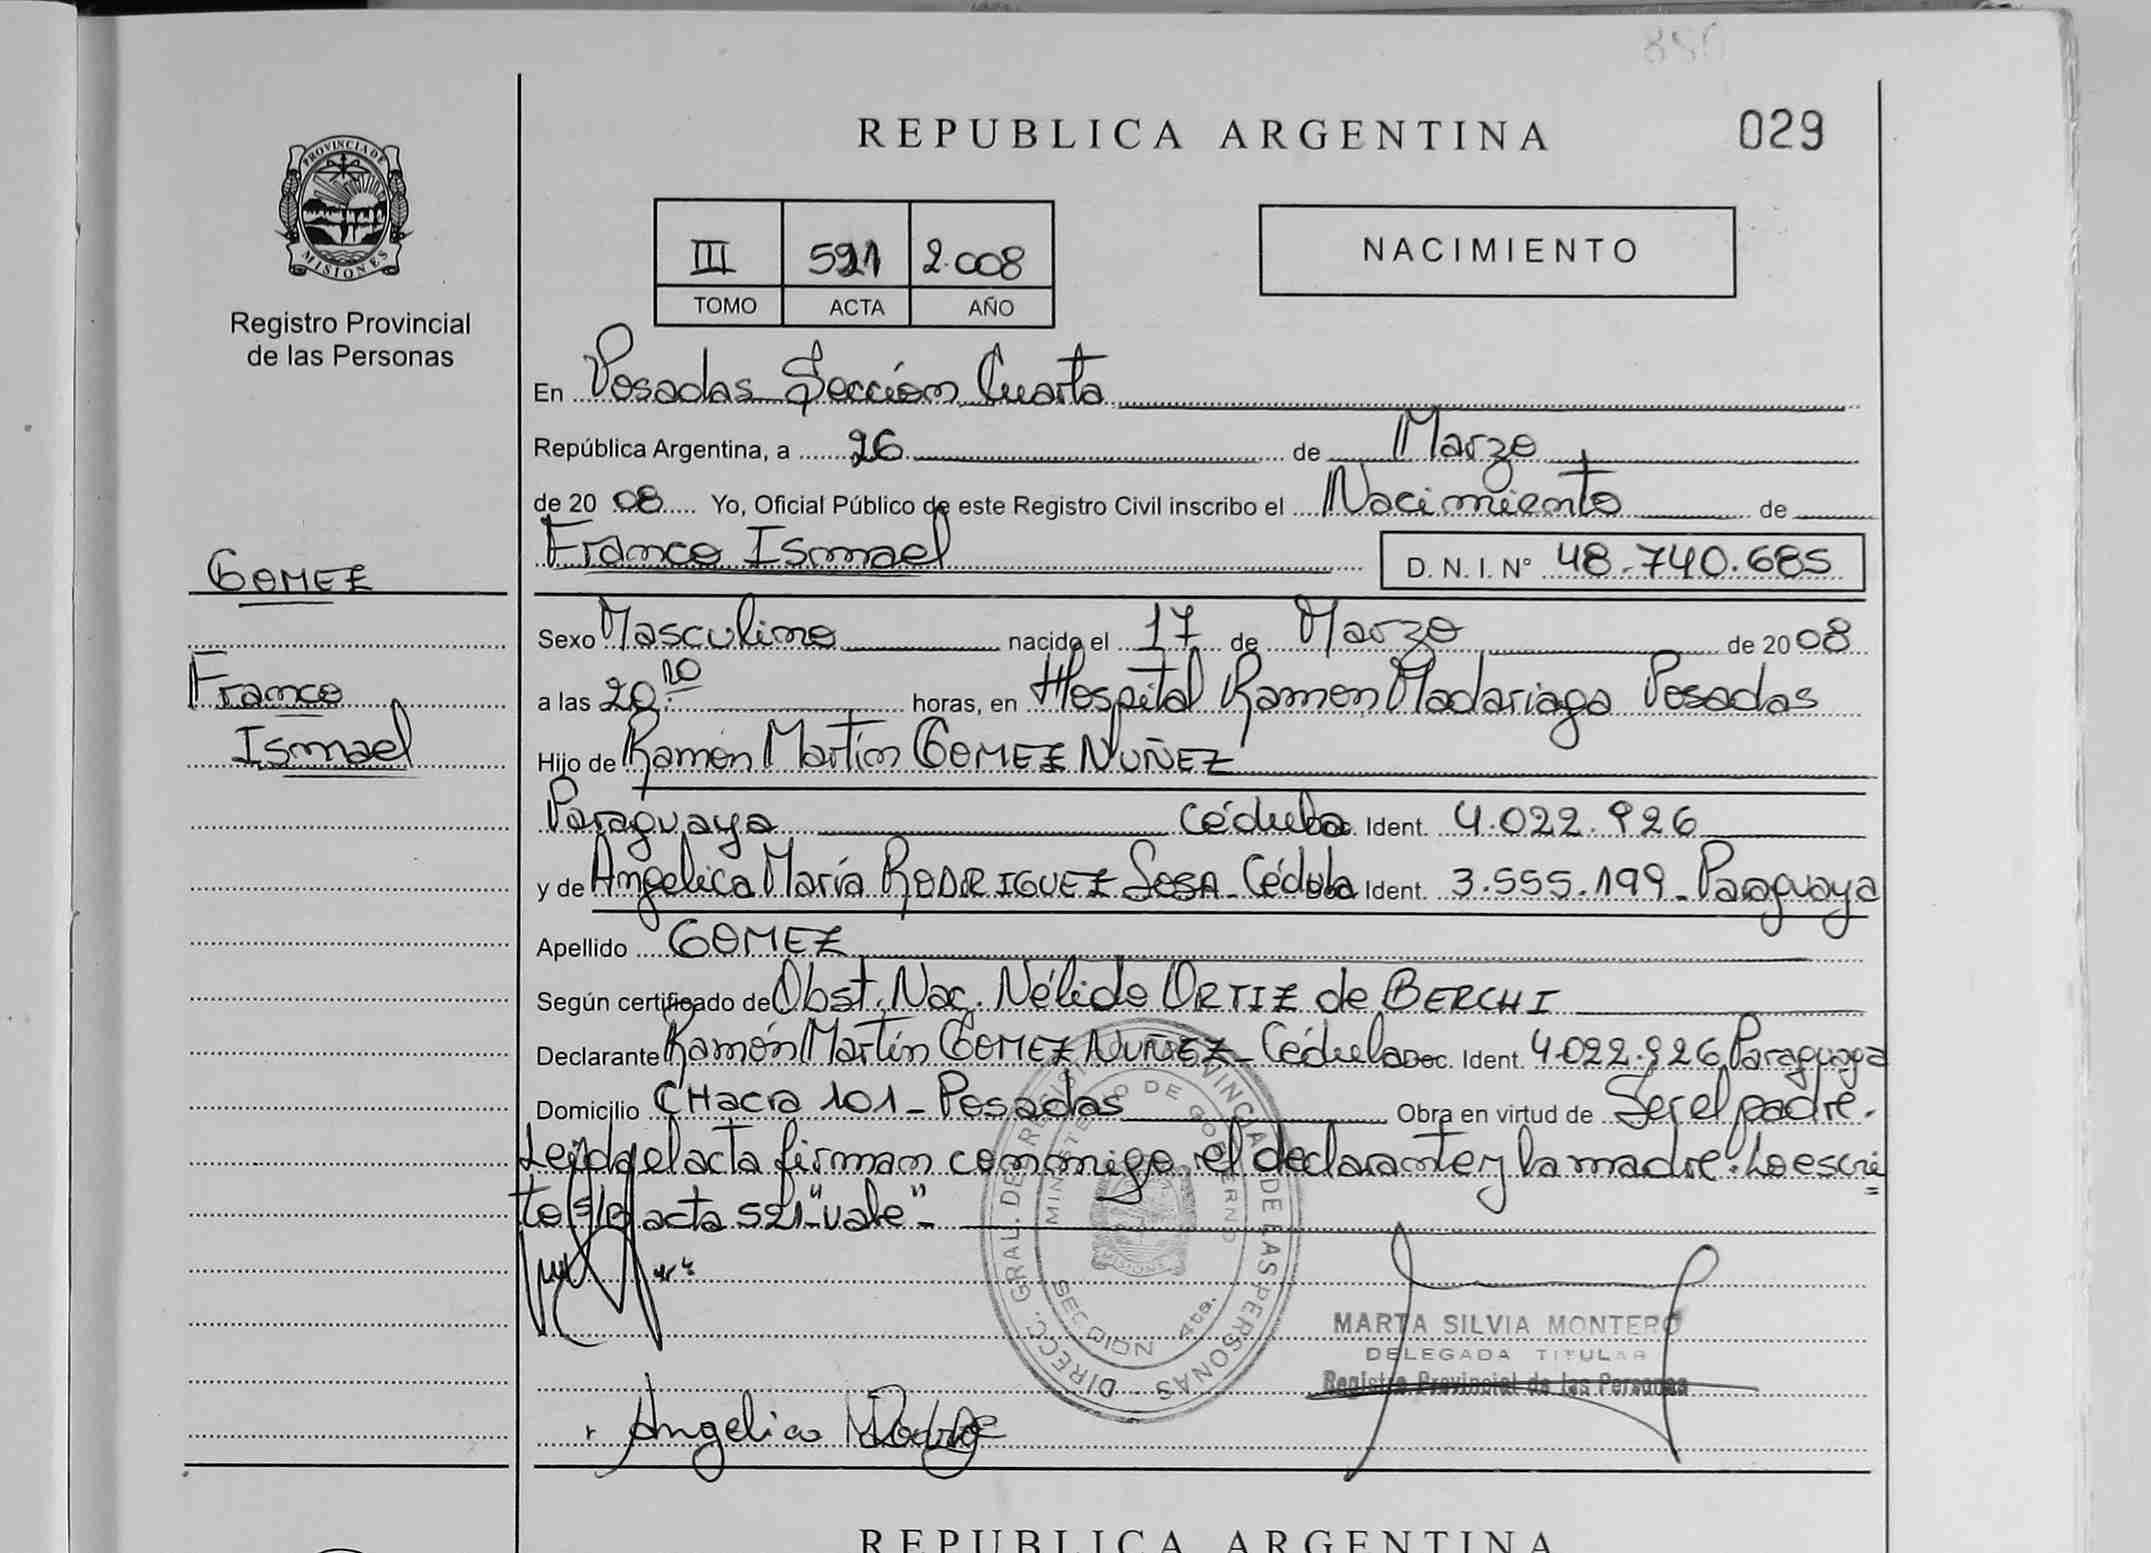 REPUBLICA ARGENTINA
029
PROVINCIA DE
MISIONES
Registro Provincial
de las Personas
III 521 2.008
TOMO ACTA AÑO
NACIMIENTO
En Posadas Sección Cuarta
República Argentina, a 26 de Marzo
de 20 08 Yo, Oficial Público de este Registro Civil inscribo el Nacimiento de
Franco Ismael D. N. I. N° 48.740.685
GOMEZ
Franco
Ismael
Sexo Masculino nacido el 17 de Marzo de 20 08
a las 20:10 horas, en Hospital Ramon Madariaga Posadas
Hijo de Ramón Martín GOMEZ NUÑEZ
Paraguaya Cédula Ident. 4.022.926
y de Angelica María RODRIGUEZ SOSA - Cédula Ident. 3.555.199 - Paraguaya
Apellido GOMEZ
Según certificado de Obst. Nac. Nélida ORTIZ de BERCHI
Declarante Ramón Martín GOMEZ NUÑEZ - Cédula Doc. Ident. 4.022.926 Paraguaya
Domicilio CHacra 101 - Posadas Obra en virtud de Ser el padre.
Leida el acta firman conmigo el declarante y la madre. Lo escri=
to s/r acta 521 "Vale" -
DIRECC. GRAL. DE REGISTRO PROVINCIAL DE LAS PERSONAS
MINISTERIO DE GOBIERNO
SECCION 4ta.
MARTA SILVIA MONTERO
DELEGADA TITULAR
Registro Provincial de las Personas
Angelica Rodrige
REPUBLICA ARGENTINA